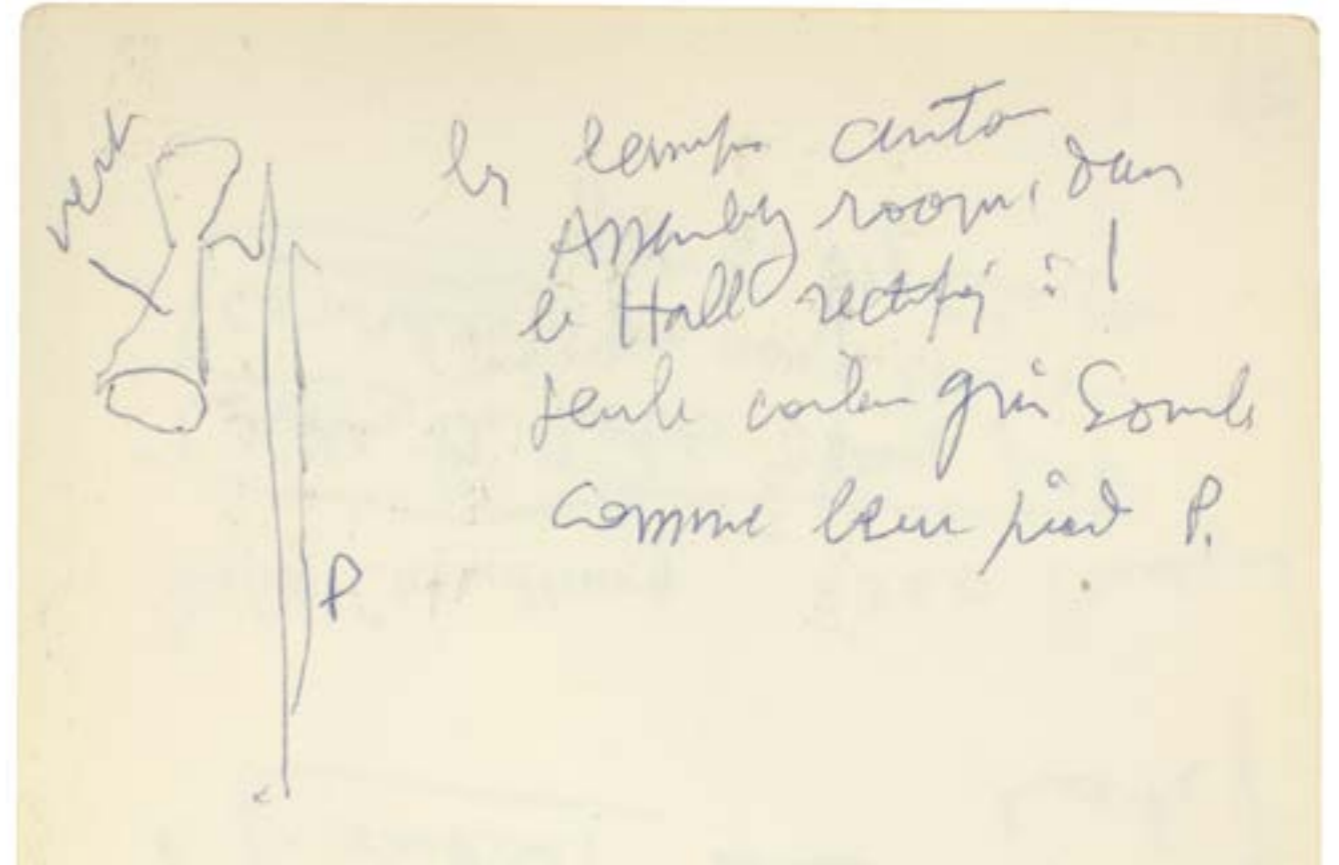 vert
les lampes auto
Assembly room, dans
le Hall rectifier : !
seule couleur gris Sombre
comme leur pied P.
P